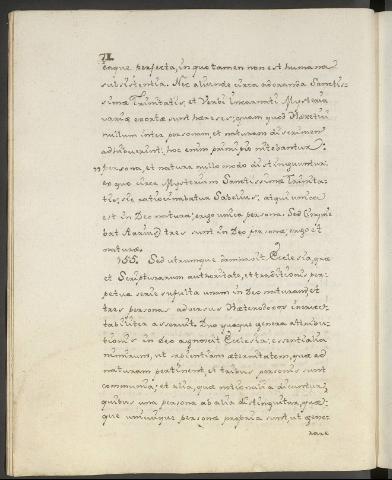 71
eaque perfecta, in quo tamen non est humana
subsistentia. Nec aliunde circa adoranda Sanctis-
simæ Trinitatis, et Verbi Incarnati Mysteria
variæ exortæ sunt hæreses; quam quod Hæretici
nullum inter personam, et naturam discrimen
adhibuerint; hoc enim principio nitebantur:
persona, et natura nullo modo distinguuntur;
ex quo circa Mysterium Sanctissimæ Trinita-
tis, sic ratiocinabatur Sabelius; atqui unica
est in Deo natura; ergo unica persona. Sed
bat Arrius; tres sunt in Deo personæ; ergo et
naturæ.
155. Sed utrumque damnavit Ecclesia, quæ
et Scripturarum authoritate, et traditionis per-
petua serie suffulta unam in Deo naturam, et
tres personas adversus Hæterodoxos
tabiliter asseruit. Duo quoque genera attribu-
tionis in Deo agnoscit Ecclesia; essentialia
nimirum, ut sapientiam æternitatem, quæ ad
naturam pertinent, et tribus personis sunt
communia; et alia, quæ notionalia dicuntur,
quibus una persona ab alia distinguitur, quæ-
que unicuique personæ propria sunt, ut gene-
rare